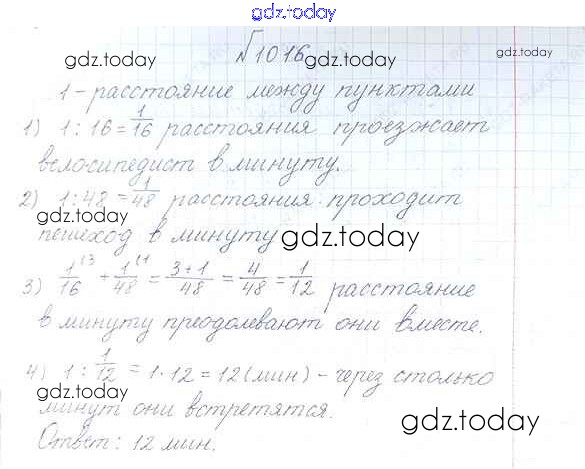 gdz.today
gdz.today
gdz.today
√1016
1 - расстояние между пунктами
1) 1 : 16 = 1/16 расстояния проезжает
велосипедист в минуту.
2) 1 : 48 = 1/48 расстояния проходит
gdz.today
пешеход в минуту
gdz.today
3) 1/16 (3 + 1/48 (1 = 3+1/48 = 4/48 = 1/12 расстояние
в минуту преодолевают они вместе.
4) 1 : 1/12 = 1·12 = 12 (мин) - через столько
gdz.today
минут они встретятся.
gdz.today
Ответ: 12 мин.